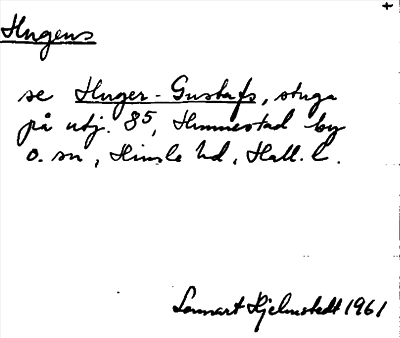 +
Hugens
se Huger-Gustafs, stuga
på utj. 85, Hunnestad by
o. sn, Himle hd, Hall. l.
Lennart Hjelmstedt 1961